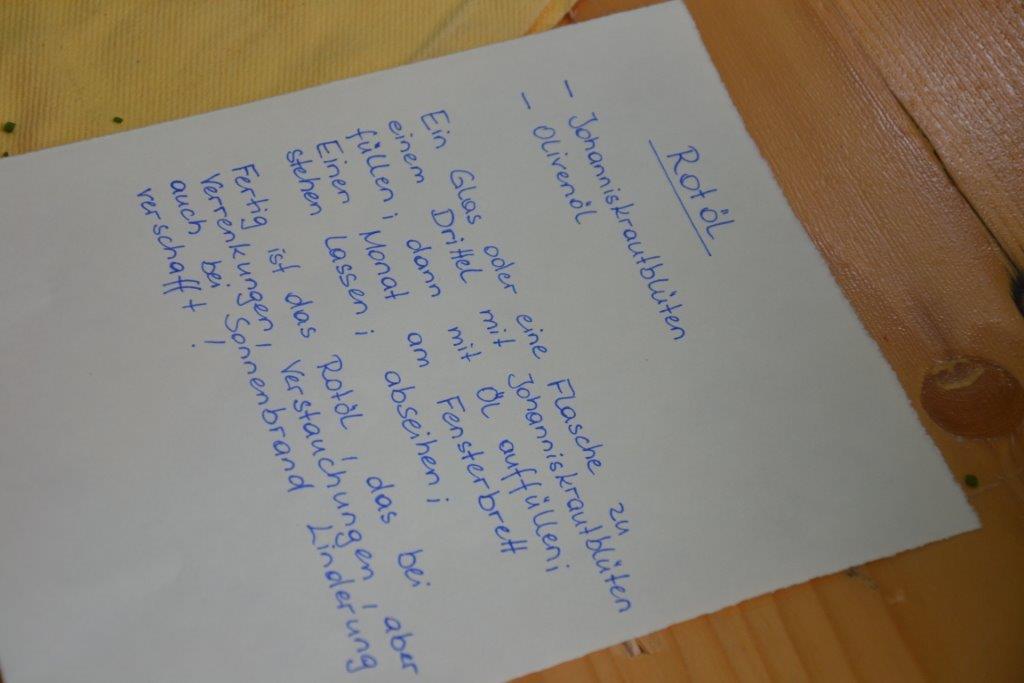 Rotöl
- Johanniskrautblüten
- Olivenöl
Ein Glas oder eine Flasche zu
einem Drittel mit Johanniskrautblüten
füllen; dann mit Öl auffüllen;
Einen Monat am Fensterbrett
stehen lassen; abseihen;
Fertig ist das Rotöl, das bei
Verrenkungen, Verstauchungen, aber
auch bei Sonnenbrand Linderung
verschafft!